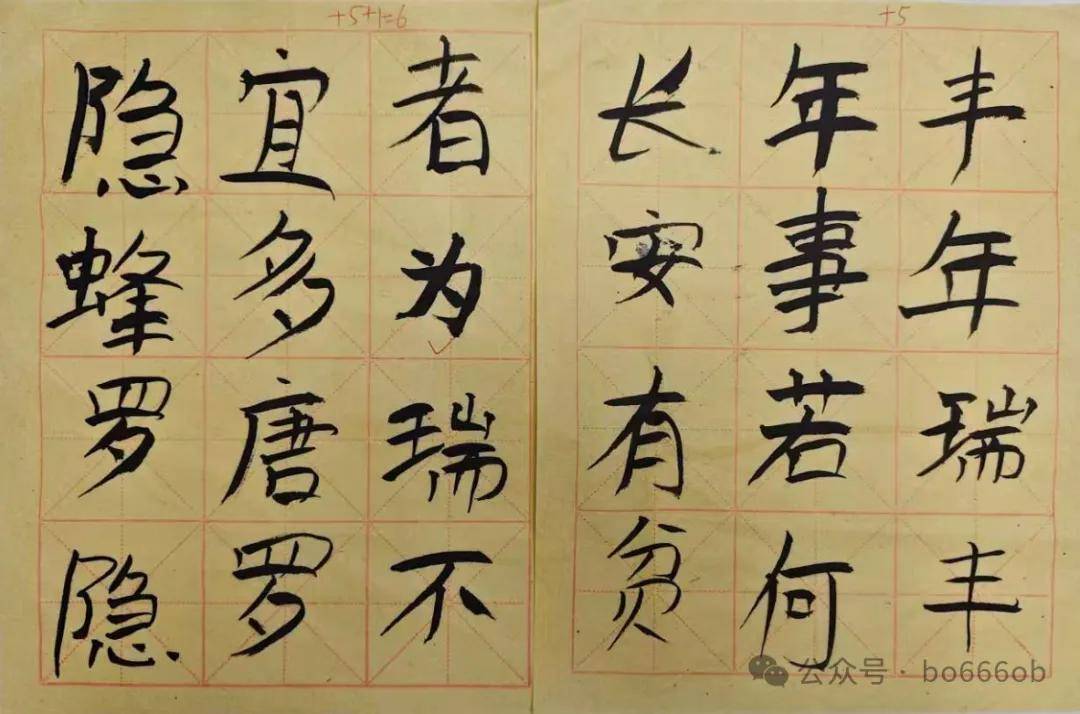 +5
丰年瑞丰
年事若何
长安有贫
+5+1=6
者为瑞不
宜多唐罗
隐蜂罗隐
公众号 · bo666ob